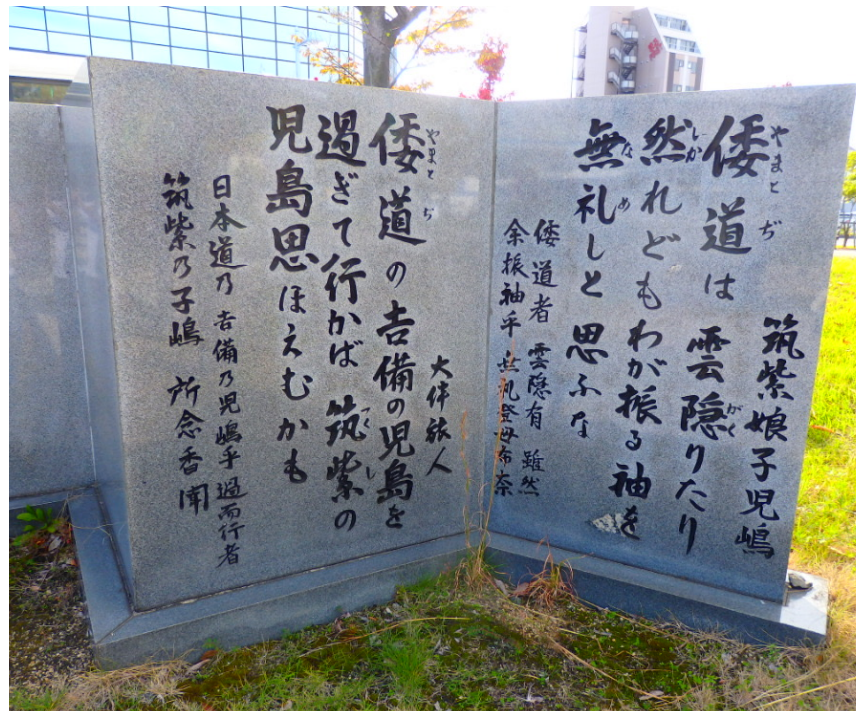 筑紫娘子児嶋
やまと ぢ がく
倭道は 雲隠りたり
しか
然れどもわが振る袖を
な め
無礼しと思ふな
倭道者 雲隠有 雖然
余振袖乎 無礼登母布奈
大伴旅人
やまと ぢ
倭道の吉備の児島を
つくし
過ぎて行かば 筑紫の
児島思ほえむかも
日本道乃 吉備乃児嶋乎 過而行者
筑紫乃子嶋 所念香聞